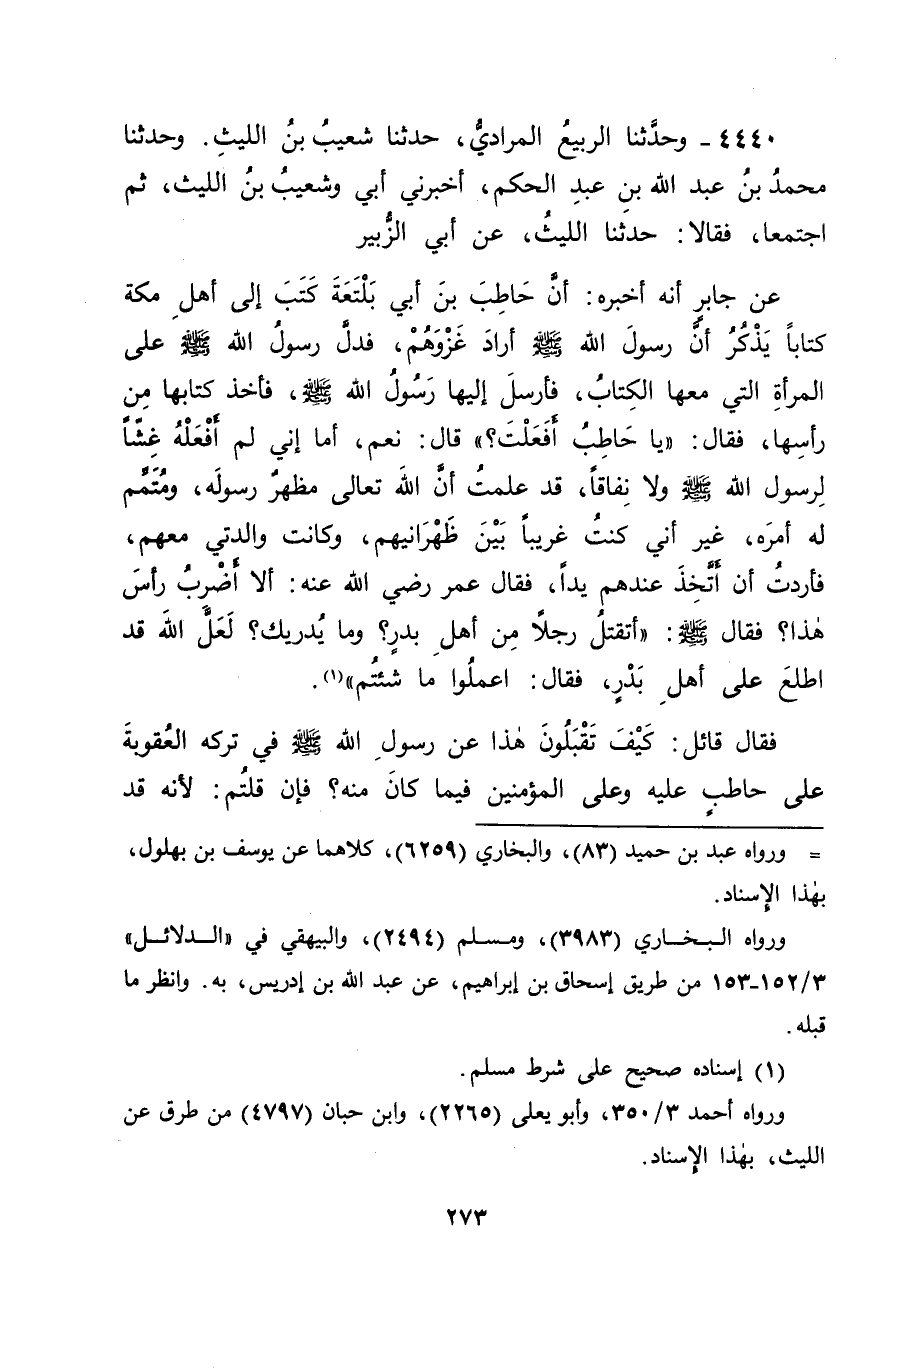 ٤٤٤٠ ـ وحدَّثنا الربيعُ المراديُّ، حدثنا شعيبُ بنُ الليثِ. وحدثنا
محمدُ بنُ عبد الله بنِ عبدِ الحكم، أخبرني أبي وشعيبُ بنُ الليث، ثم
اجتمعا، فقالا: حدثنا الليثُ، عن أبي الزُّبير
عن جابرٍ أنه أخبره: أنَّ حَاطِبَ بنَ أبي بَلْتَعَةَ كَتَبَ إلى أهلِ مكة
كتاباً يَذْكُرُ أنَّ رسولَ الله ﷺ أرادَ غَزْوَهُمْ، فدلَّ رسولُ الله ﷺ على
المرأةِ التي معها الكِتابُ، فأرسلَ إليها رَسُولُ الله ﷺ، فأخذ كتابها مِن
رأسِها، فقال: «يا حَاطِبُ أَفَعَلْتَ؟» قال: نعم، أما إني لم أَفْعَلْهُ غِشّاً
لِرسول الله ﷺ ولا نِفاقاً، قد علمتُ أنَّ اللهَ تعالى مظهرٌ رسولَه، ومُتَمِّم
له أمرَه، غير أني كنتُ غريباً بَيْنَ ظَهْرَانيهم، وكانت والدتي معهم،
فأردتُ أن أَتَّخِذَ عندهم يداً، فقال عمر رضي الله عنه: ألا أَضْرِبُ رأسَ
هٰذا؟ فقال ﷺ: «أتقتلُ رجلاً مِن أهلِ بدرٍ؟ وما يُدريك؟ لَعَلَّ اللهَ قد
اطلعَ على أهلِ بَدْرٍ، فقال: اعملُوا ما شئتُم»(١).
فقال قائل: كَيْفَ تَقْبَلُونَ هٰذا عن رسولِ الله ﷺ في تركه العُقوبةَ
على حاطبٍ عليه وعلى المؤمنين فيما كانَ منه؟ فإن قلتُم: لأنه قد
= ورواه عبد بن حميد (٨٣)، والبخاري (٦٢٥٩)، كلاهما عن يوسف بن بهلول،
بهٰذا الإِسناد.
ورواه البخاري (٣٩٨٣)، ومسلم (٢٤٩٤)، والبيهقي في «الدلائل»
٣/١٥٢ـ١٥٣ من طريق إسحاق بن إبراهيم، عن عبد الله بن إدريس، به. وانظر ما
قبله.
(١) إسناده صحيح على شرط مسلم.
ورواه أحمد ٣/٣٥٠، وأبو يعلى (٢٢٦٥)، وابن حبان (٤٧٩٧) من طرق عن
الليث، بهٰذا الإِسناد.
٢٧٣